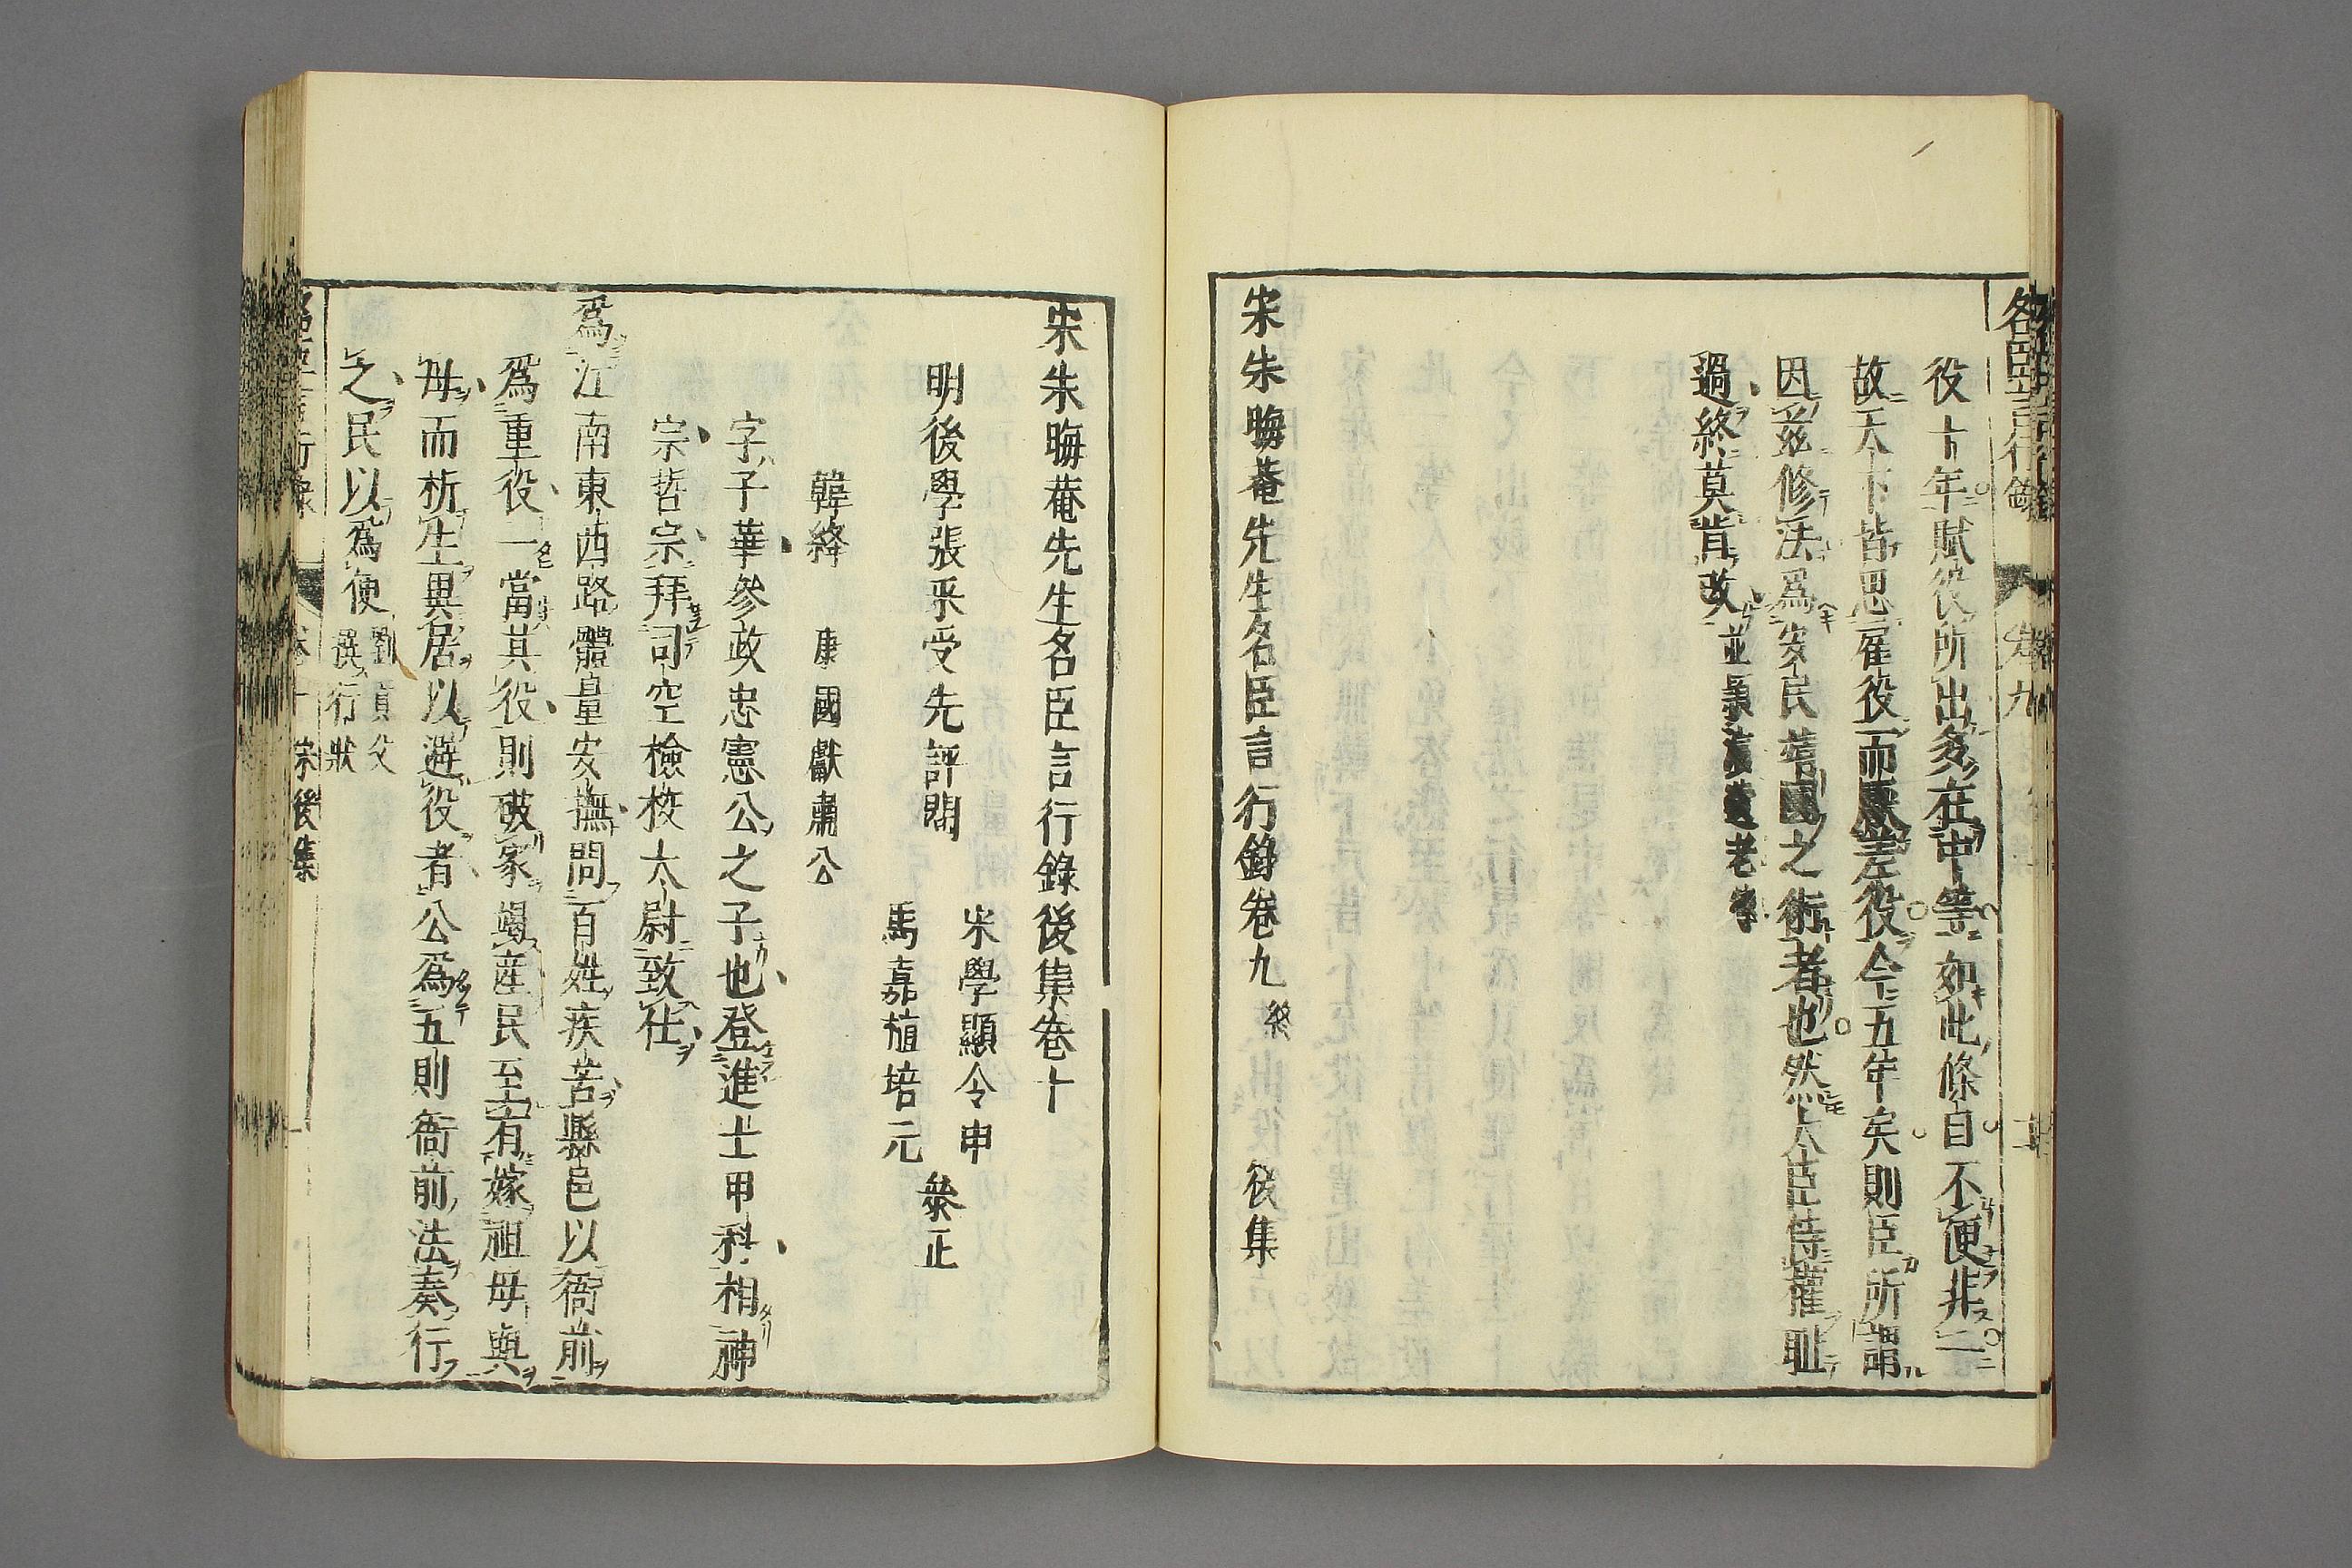 名臣言行錄 卷九
役十年賦役所出多在中等如此條自不便非一
故天下皆思雇役而厭差役今五年矣則臣所謂
因茲修法爲安民靖國之術者也然大臣恃權耻
過終莫肯改 並潁濱遺老傳
宋朱晦菴先生名臣言行錄卷九 終 後集
宋朱晦菴先生名臣言行錄後集卷十
宋學顯令申
明後學張采受先評閱
馬嘉植培元
叅正
韓絳 康國獻肅公
字子華參政忠憲公之子也登進士甲科相神
宗哲宗拜司空檢校太尉致仕
爲江南東西路體量安撫問百姓疾苦縣邑以衙前
爲重役一當其役則破家竭産民至有嫁祖母與
母而析生異居以避役者公爲五則衙前法奏行
之民以爲便 劉貢父
譔行狀
名臣言行錄 卷十 宋後集